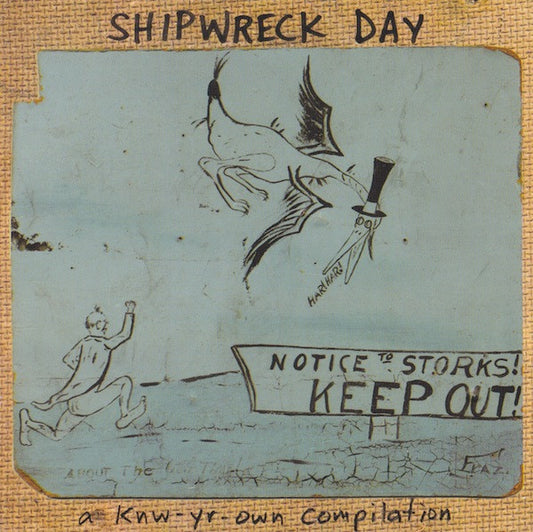 SHIPWRECK DAY
HAR! HAR!
NOTICE TO STORKS!
KEEP OUT!
ABOUT THE
a Knw-yr-own compilation